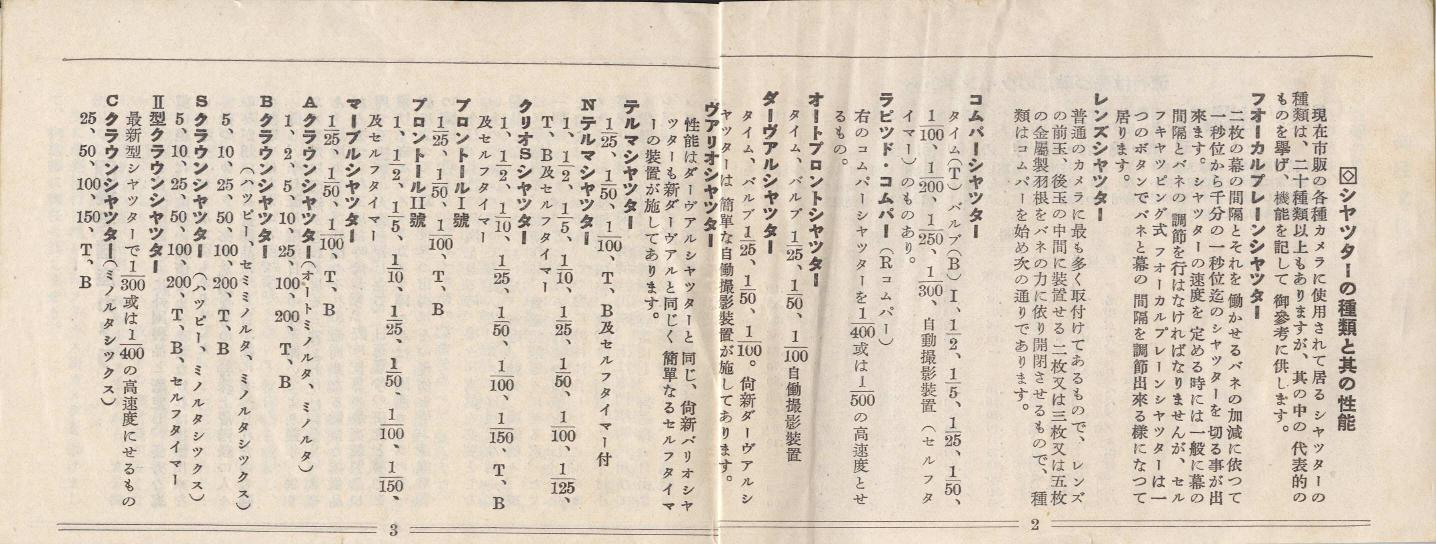 ◇シヤツターの種類と其の性能
現在市販の各種カメラに使用されて居る シヤツターの
種類は、二十種類以上もありますが、其の中の 代表的の
ものを擧げ、機能を記して 御參考に供します。
フオーカルプレーンシヤツター
二枚の幕の間隔とそれを 働かせるバネの加減に依つて
一秒位から千分の一秒位迄のシヤツターを切る事が出
來ます。シヤツターの速度を 定める時には一般に幕の
間隔とバネの 調節を行はなければなりませんが、セル
フキヤツピング式 フオーカルプレーンシヤツターは一
つのボタンでバネと幕の 間隔を調節出來る樣になつて
居ります。
レンズシヤツター
普通のカメラに最も多く取付けてあるもので、レンズ
の前玉、後玉の中間に裝置せる 二枚又は三枚又は五枚
の金屬製羽根をバネの力に依り開閉させるもので、種
類はコムパーを始め次の通りであります。
コムパーシヤツター
タイム(T)バルブ(B)I、1/2、1/5、1/25、1/50、
1/100、1/200、1/250、1/300、自動撮影裝置(セルフタ
イマー)のものあり。
ラピツド・コムパー(Rコムパー)
右のコムパーシヤツターを1/400或は1/500の高速度とせ
るもの。
オートプロントシヤツター
タイム、バルブ 1/25、1/50、1/100自働撮影裝置
ダーヴアルシヤツター
タイム、バルブ1/25、1/50、1/100。尙新ダーヴアルシ
ヤツターは 簡單な自働撮影裝置が施してあります。
ヴアリオシヤツター
性能はダーヴアルシヤツターと 同じ、尙新バリオシヤ
ツターも新ダーヴアルと同じく 簡單なるセルフタイマ
ーの裝置が施してあります。
テルマシヤツター
1/25、1/50、1/100、T、B及セルフタイマー付
Nテルマシヤツター
1、1/2、1/5、1/10、1/25、1/50、1/100、1/125、
T、B及セルフタイマー
クリオSシヤツター
1、1/2、1/10、1/25、1/50、1/100、1/150、T、B
及セルフタイマー
プロントールI號
1/25、1/50、1/100、T、B
プロントールII號
1、1/2、1/5、1/10、1/25、1/50、1/100、1/150、
及セルフタイマー
マーブルシヤツター
1/25、1/50、1/100、T、B
Aクラウンシヤツター(オートミノルタ、ミノルタ)
1、2、5、10、25、100、200、T、B
Bクラウンシヤツター
(ハツピー、セミミノルタ、ミノルタシツクス)
5、10、25、50、100、200、T、B
Sクラウンシヤツター (ハツピー、ミノルタシツクス)
5、10、25、50、100、200、T、B、セルフタイマー
II型クラウンシヤツター
最新型シヤツターで1/300或は1/400の高速度にせるもの
Cクラウンシヤツター(ミノルタシツクス)
25、50、100、150、T、B
2
3